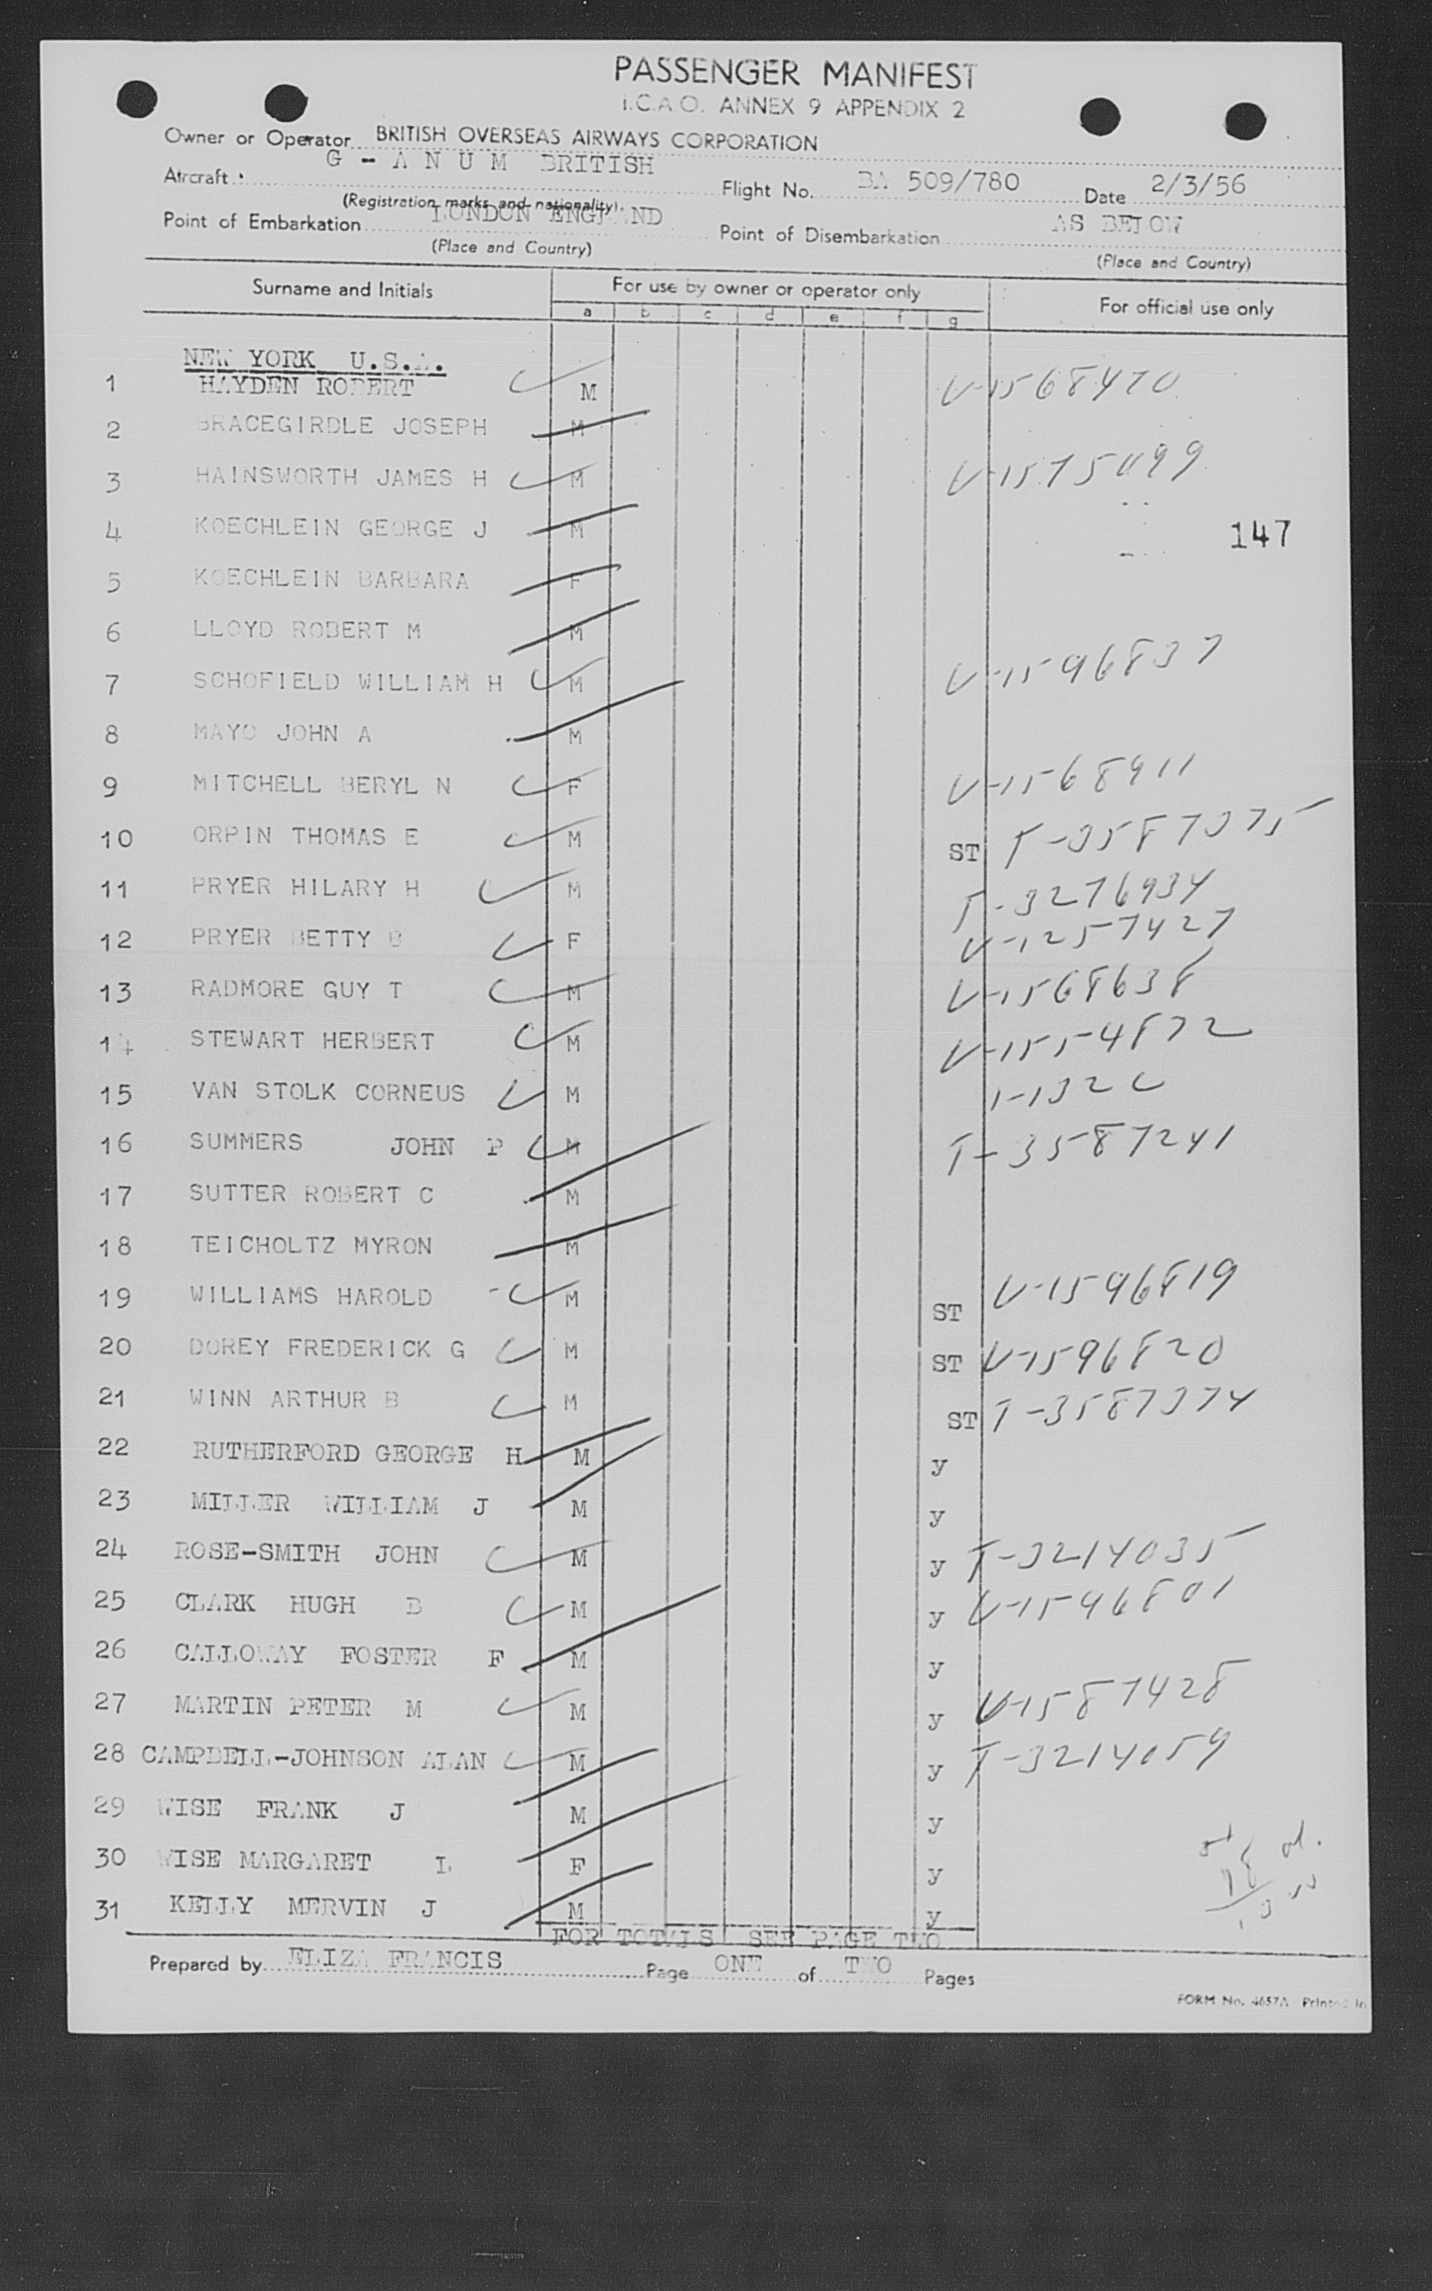 PASSENGER MANIFEST
I.C.A.O. ANNEX 9 APPENDIX 2
Owner or Operator BRITISH OVERSEAS AIRWAYS CORPORATION
Aircraft G - A N U M BRITISH Flight No. BA 509/780 Date 2/3/56
(Registration marks and nationality)
Point of Embarkation LONDON ENGLAND Point of Disembarkation AS BELOW
(Place and Country) (Place and Country)
Surname and Initials For use by owner or operator only For official use only
a b c d e f g
NEW YORK U.S.A.
1 HAYDEN ROBERT M V-1568470
2 BRACEGIRDLE JOSEPH M
3 HAINSWORTH JAMES H M V-1575099
4 KOECHLEIN GEORGE J M 147
5 KOECHLEIN BARBARA F
6 LLOYD ROBERT M M
7 SCHOFIELD WILLIAM H M V-1596837
8 MAYO JOHN A M
9 MITCHELL BERYL N F V-1568911
10 ORPIN THOMAS E M ST T-3587375
11 PRYER HILARY H M T-3276934
12 PRYER BETTY B F V-1257427
13 RADMORE GUY T M V-1568638
14 STEWART HERBERT M V-1554872
15 VAN STOLK CORNEUS M
16 SUMMERS JOHN P M T-3587241
17 SUTTER ROBERT C M
18 TEICHOLTZ MYRON M
19 WILLIAMS HAROLD M ST V-1596819
20 DOREY FREDERICK G M ST V-1596820
21 WINN ARTHUR B M ST T-3587374
22 RUTHERFORD GEORGE H M y
23 MILLER WILLIAM J M y
24 ROSE-SMITH JOHN M y T-3214035
25 CLARK HUGH B M y V-1596801
26 CALLOWAY FOSTER F M y
27 MARTIN PETER M M y V-1587428
28 CAMPBELL-JOHNSON ALAN M y T-3214059
29 WISE FRANK J M y
30 WISE MARGARET L F y
31 KELLY MERVIN J M y
FOR TOTALS SEE PAGE TWO
Prepared by ELIZA FRANCIS Page ONE of TWO Pages
FORM No. 4657A Printed in